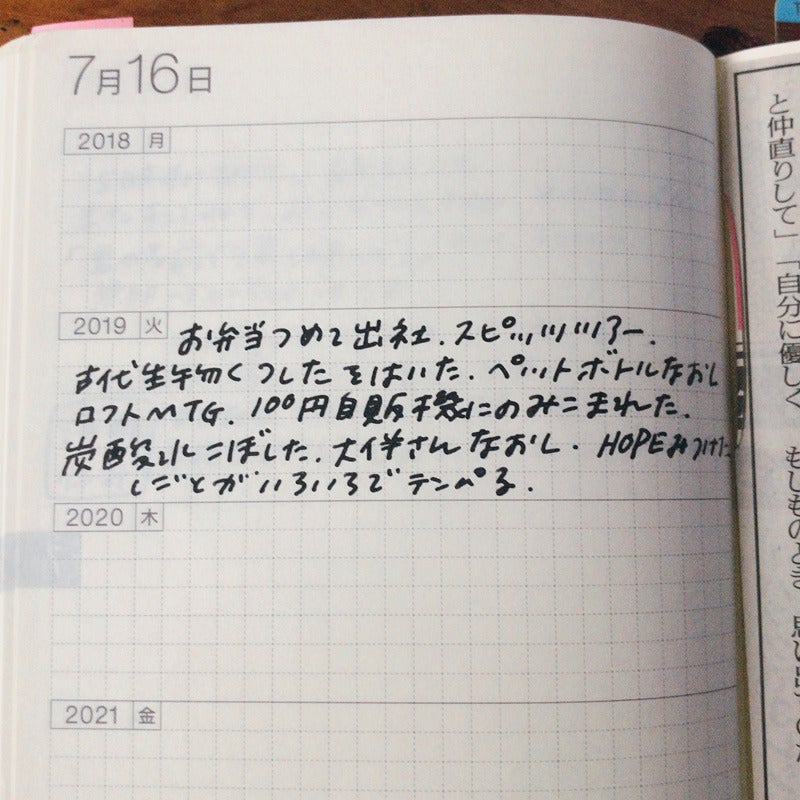 7月16日
2018 月
2019 火
お弁当つめて出社.スピッツツアー.
古代生物くつしたをはいた.ペットボトルなおし
ロフトMTG.100円自販機にのみこまれた.
炭酸水こぼした.大伴さんなおし.HOPEみつけた
しごとがいろいろでテンパる.
2020 木
2021 金
と仲直りして」「自分に優しく もしものとき 思い出